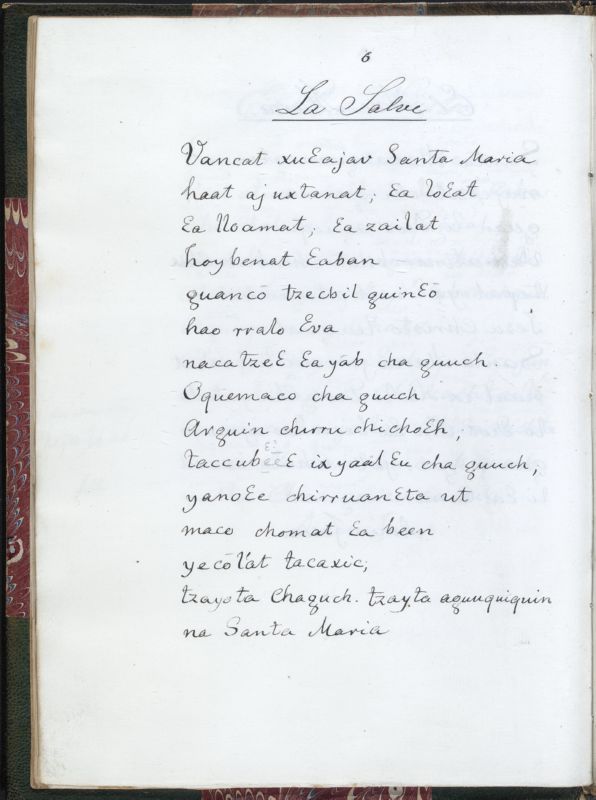 6
La Salve
Vancat xuƐajav Santa Maria
haat aj uxtanat; Ɛa loƐat
Ɛa lloamat, Ɛa zailat
hoy benat Ɛaban
guancō tzecbil guinƐō
hao rralo Ɛva
nacatzeƐ Ɛa yāb cha guuch.
Oquemaco cha guuch
Arguin churru chichoƐh,
taccubƐeƐ ix yaal Ɛu cha guuch,
yanoƐe chirruanƐta ut
maco chomat Ɛa been
yecōl'at tacaxic,
tzayota Chaguch. tzayta aguuquiquin
na Santa Maria